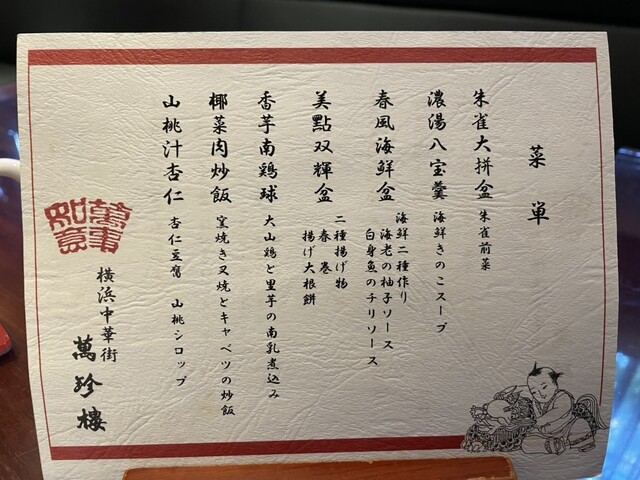 菜単
朱雀大拼盆 朱雀前菜
濃湯八宝羹 海鮮きのこスープ
春風海鮮盆 海鮮二種作り
海老の柚子ソース
白身魚のチリソース
美點双輝盆 二種揚げ物
春巻
揚げ大根餅
香芋南鶏球 大山鶏と里芋の南乳煮込み
椰菜肉炒飯 窯焼き叉焼とキャベツの炒飯
山桃汁杏仁 杏仁豆腐 山桃シロップ
萬事如意
横浜中華街
萬珍樓